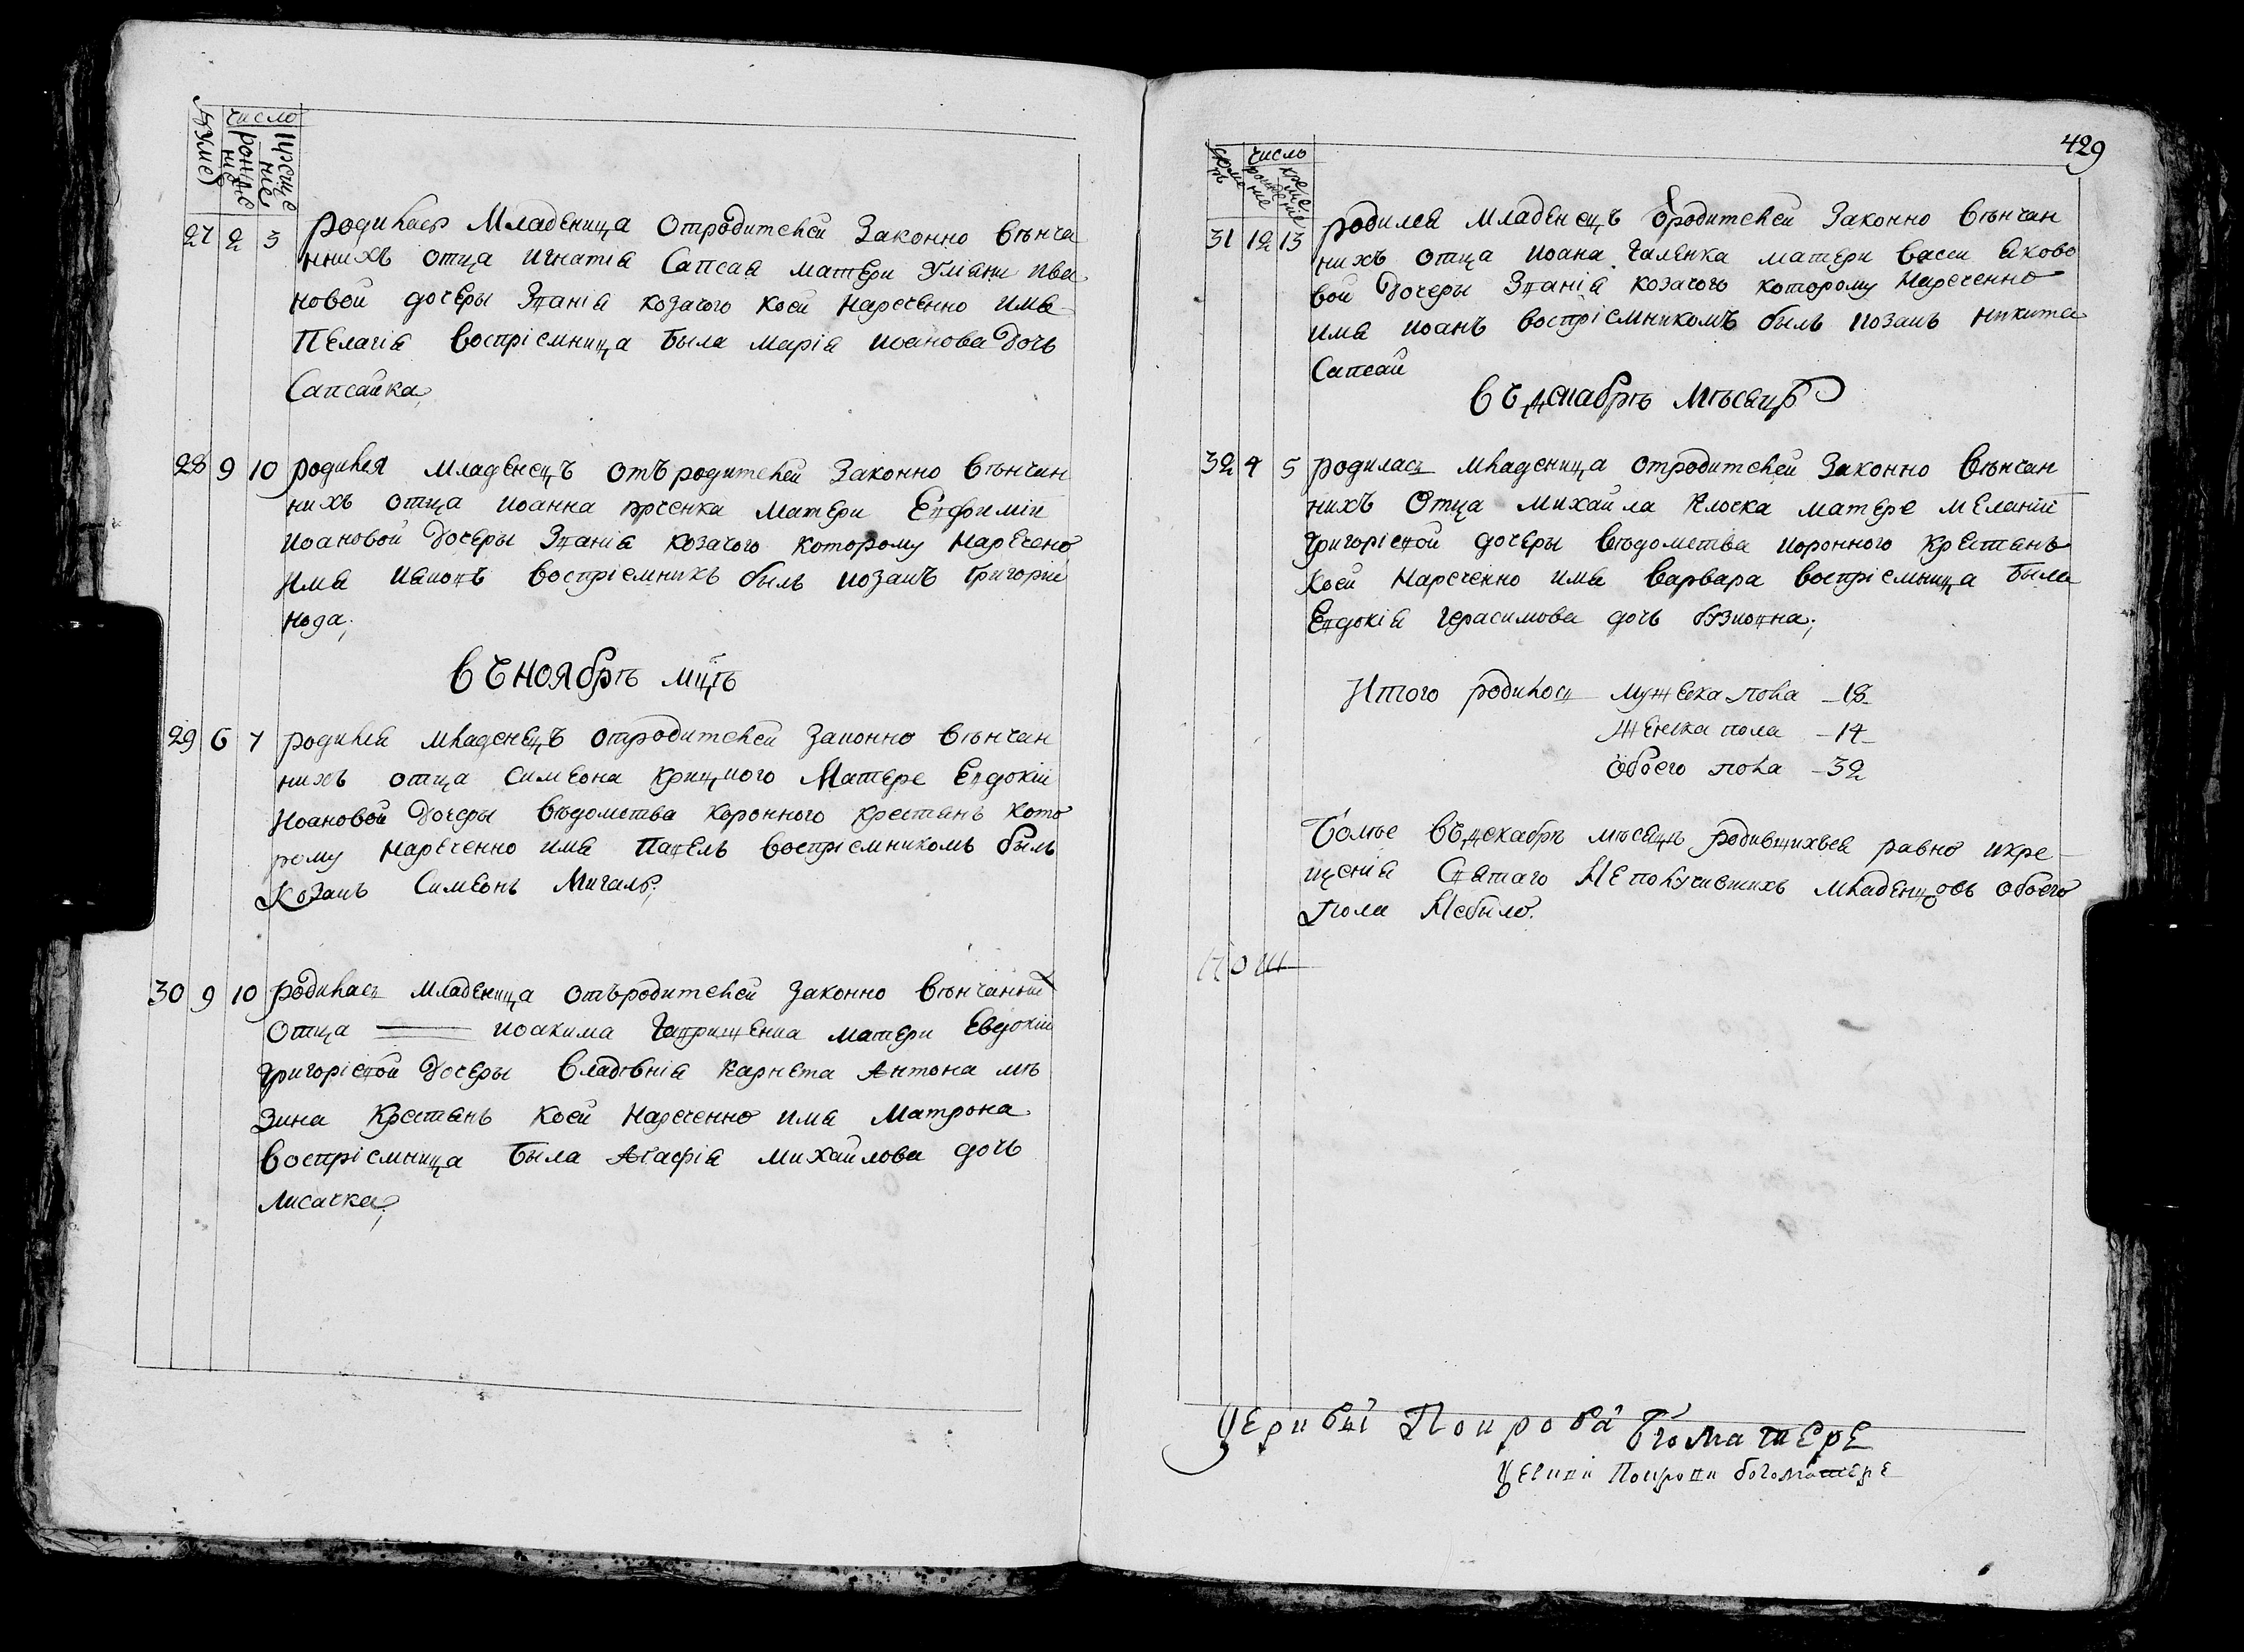 число
рожде
ние
креще
ние
27 2 3 родилась младеница отродителей законно вѣнча
ннихъ отца игнатія Сапсая матери Уліяни ива
новой дочеры званія козачого коей наречено имя
Пелагія воспріемница была марія иоанова дочь
Сапсайка;
28 9 10 родился младенецъ отъродителей законно вѣнчан
нихъ отца иоанна матери Евфиміи
иоановой дочеры званія козачого которому наречено
имя иаковъ воспріемникъ былъ козакъ григорій
нода;
въноябрѣ мцѣ
29 6 7 родился младенецъ отродителей законно вѣнчан
нихъ отца симеона крицкого матере Евдокіи
иоановой дочеры вѣдомства коронного крестянъ кото
рому нареченно имя Павелъ воспріемникомъ былъ
козакъ Симеонъ Мигаль;
30 9 10 родилась младеница отъродителей законно вѣнчанній
отца иоакима гавришенка матери Евдокіи
григоріевой дочеры владѣнія карнета Антона мѣ
зина крестянъ коей нареченно имя матрона
воспріемница была Агафія михайлова дочь
лисачка;
429
число
рожде
ние
креще
ние
31 12 13 родился младенецъ ѿродителей законно вѣнчан
нихъ отца иоана галенка матери васси яково
вой дочеры званія козачого которому нареченно
имя иоанъ воспріемникомъ былъ козакъ никита
Сапсай
въ декабрѣ мѣсяцѣ
32 4 5 родилась младеница отродителей законно вѣнчан
нихъ отца михайла клочка матере меланіи
григоріевой дочеры вѣдомства коронного крестянъ
коей нареченно имя варвара воспріемница была
Евдокія герасимова дочь бузиовна;
Итого родилось мужеска пола – 18
женска пола – 14
обоего пола – 32
Болѣе въдекабрѣ мѣсяцѣ родившихъся равно икре
щенія святаго неполучившихъ младенцовъ обоего
пола небыло.
Церкви Покрова Бгоматере
Покрови богоматере